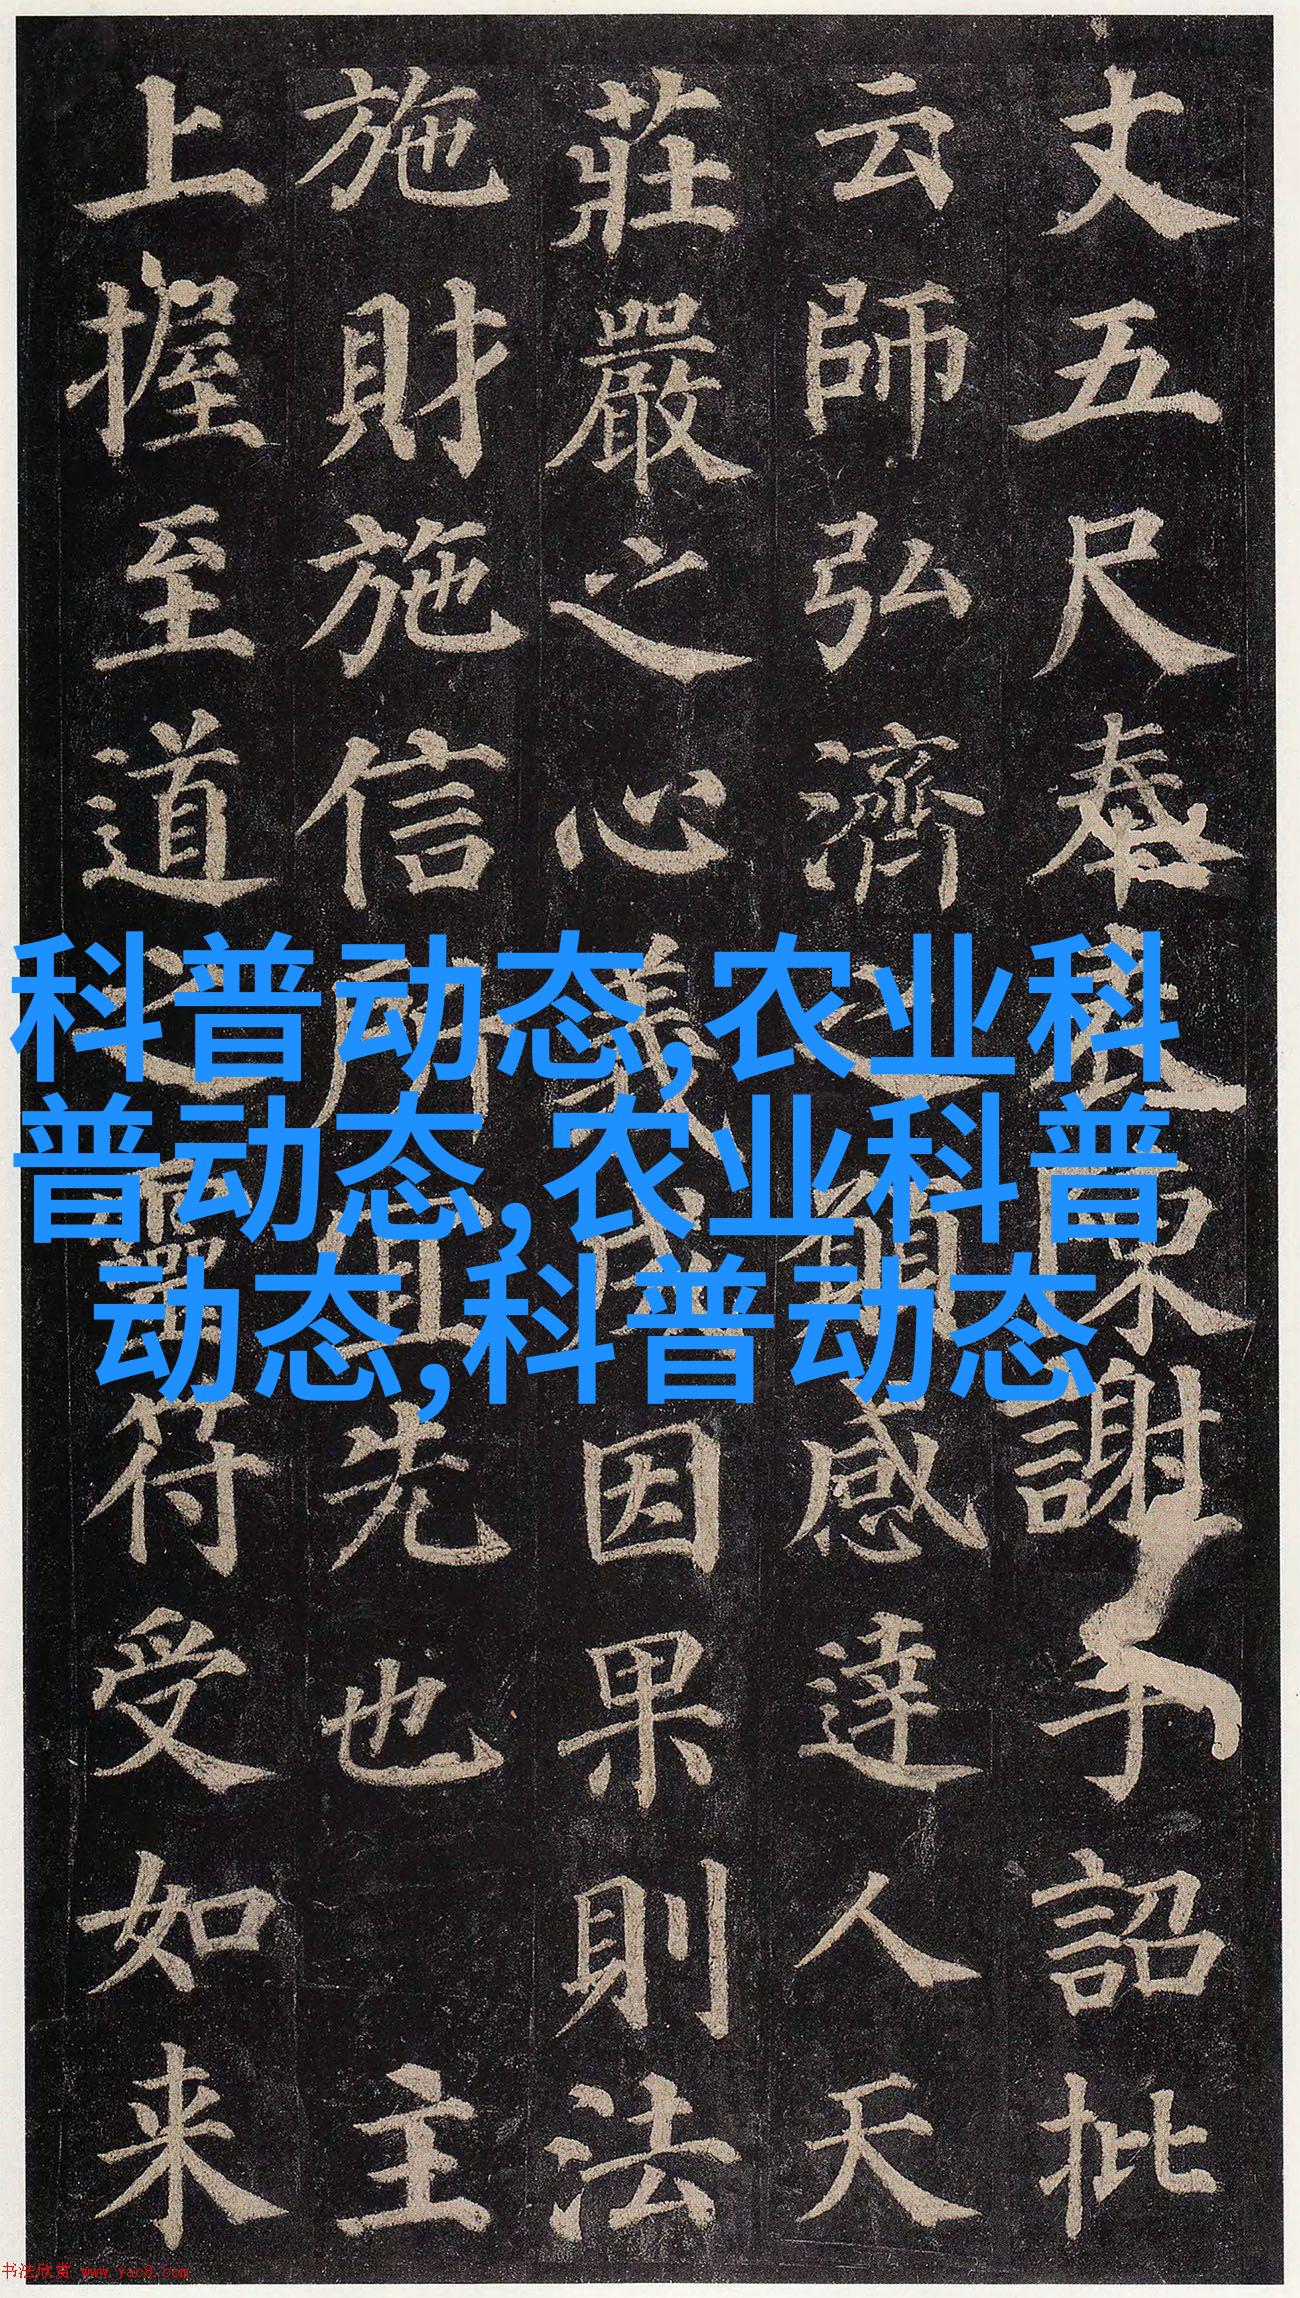 丈五尺奉陳謝手詔批
云師弘濟之願感達人天
莊嚴之心義成因果則法
施財施信所先也 主
上握至道之靈符受如来
科普动态,农业科
普动态,农业科普
动态,科普动态
书法欣赏 www.yac8.com